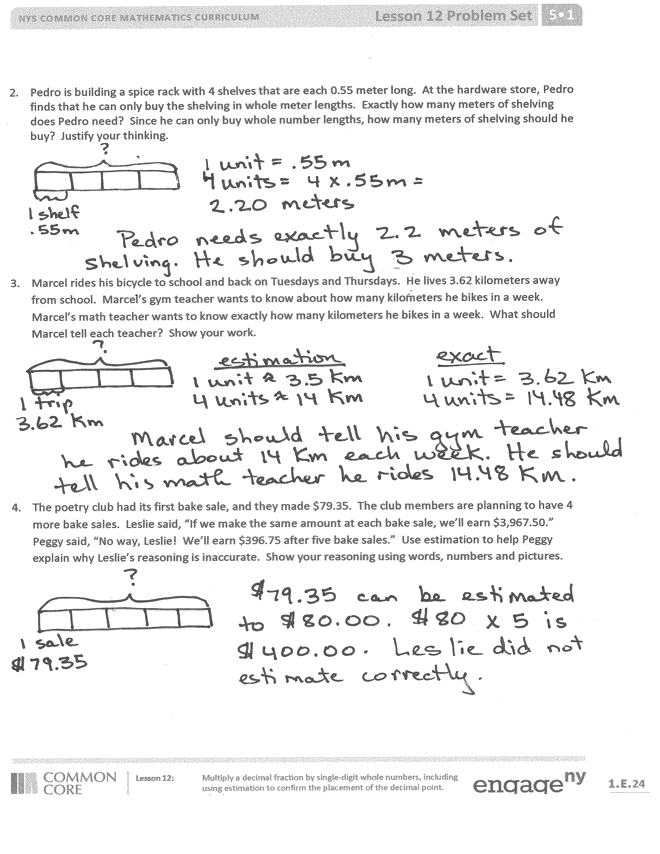 NYS COMMON CORE MATHEMATICS CURRICULUM
Lesson 12 Problem Set
5•1
2. Pedro is building a spice rack with 4 shelves that are each 0.55 meter long. At the hardware store, Pedro
finds that he can only buy the shelving in whole meter lengths. Exactly how many meters of shelving
does Pedro need? Since he can only buy whole number lengths, how many meters of shelving should he
buy? Justify your thinking.
?
1 shelf
.55m
1 unit = .55m
4 units = 4 x .55m =
2.20 meters
Pedro needs exactly 2.2 meters of
shelving. He should buy 3 meters.
3. Marcel rides his bicycle to school and back on Tuesdays and Thursdays. He lives 3.62 kilometers away
from school. Marcel's gym teacher wants to know about how many kilometers he bikes in a week.
Marcel's math teacher wants to know exactly how many kilometers he bikes in a week. What should
Marcel tell each teacher? Show your work.
?
1 trip
3.62 Km
estimation
1 unit ≈ 3.5 Km
4 units ≈ 14 Km
exact
1 unit = 3.62 Km
4 units = 14.48 Km
Marcel should tell his gym teacher
he rides about 14 Km each week. He should
tell his math teacher he rides 14.48 Km.
4. The poetry club had its first bake sale, and they made $79.35. The club members are planning to have 4
more bake sales. Leslie said, "If we make the same amount at each bake sale, we'll earn $3,967.50."
Peggy said, "No way, Leslie! We'll earn $396.75 after five bake sales." Use estimation to help Peggy
explain why Leslie's reasoning is inaccurate. Show your reasoning using words, numbers and pictures.
?
1 sale
$79.35
$79.35 can be estimated
to $80.00. $80 x 5 is
$400.00. Leslie did not
estimate correctly.
COMMON
CORE
Lesson 12:
Multiply a decimal fraction by single-digit whole numbers, including
using estimation to confirm the placement of the decimal point.
engage ny
1.E.24